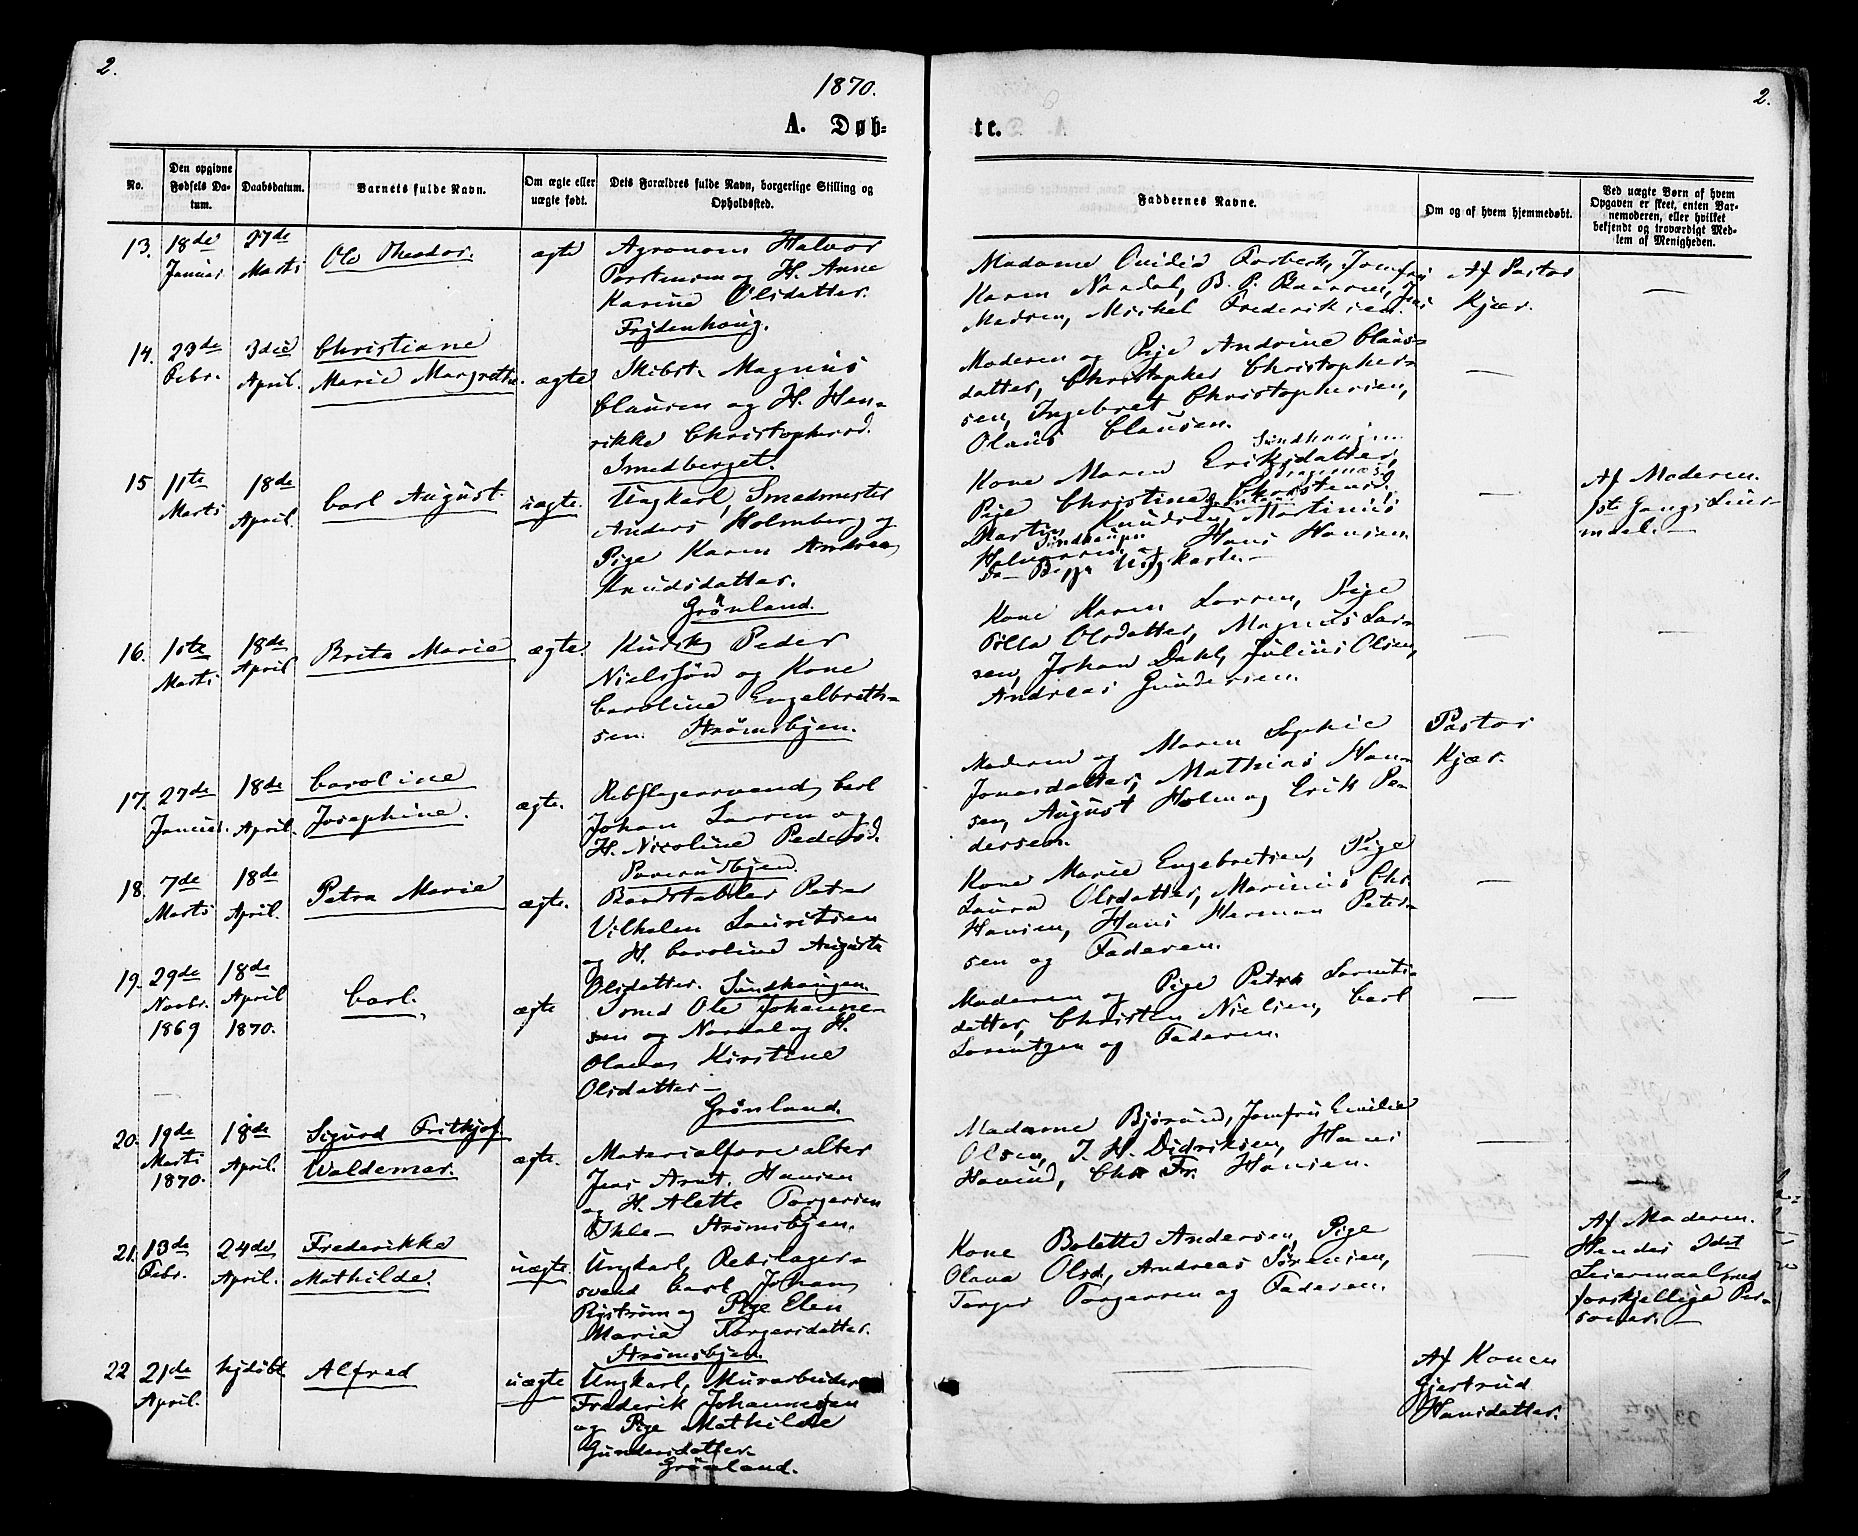 2.
1870.
2.
A. Døb-
te.
No.
Den opgivne Fødsels Da-tum.
Daabsdatum.
Barnets fulde Navn.
Om ægte eller uægte født.
Dets Forældres fulde Navn, borgerlige Stilling og Opholdssted.
Faddernes Navne.
Om og af hvem hjemmedøbt.
Ved uægte Børn af hvem Opgaven er skeet, enten Bar-nemoderen, eller hvilket bekjendt og troværdigt Med-lem af Menigheden.
13.
18de
Januar
27de
Marts
Ole Theodor.
ægte
Agronom Halvor
Torstensen og H. Anne
Karine Olsdatter.
Frydenhaug.
Madame Torbeck, Jomfru
Karen Nordal, B. P.
Madsen, Michel Frederiksen.
Af Pastor
Kjær.
14.
23de
Febr.
3die
April.
Christiane
Marie Margrethe.
ægte
Skibst. Magnus
Clausen og H. Hen-
rikke Christophersd.
Smedberget.
Moderen og Pige Andrine Claus-
datter, Christopher Christopher-
sen, Ingebret Christophersen,
Olaus Clausen.
15
11te
Marts
18de
April.
Carl August.
uægte.
Ungkarl, Smedmester
Anders Holmberg og
Pige Karen Andrea
Knudsdatter.
Grønland.
Sundhaugen
Kone Maren Eriksdatter,
Pige Christine Christensd.
Martin Knudsen, Martinus
Sundhaugen
Halvorsen og Hans Hansen
Begge Ungkarle.
Af Moderen.
1ste Gangs Leier-
maal.
16.
1ste
Marts
18de
April
Brita Marie
ægte.
Kudsk Peder
Nielssøn og Kone
Caroline Engelbreth-
sen. Strømsbyen.
Kone Karen Larsen, Pige
Pilla Olsdatter, Magnus Lar-
sen, Johan Dahl, Julius Olsen,
Andreas Gundersen.
17.
27de
Januar.
18de
April.
Caroline
Josephine.
ægte.
Rebslagersvend, Carl
Johan Larsen og
H. Nicoline Pedersd.
Moderen og Maren Sophie
Jonasdatter, Mathias Han-
sen, August Holm og Erik Pe-
dersen.
Pastor
Kjær.
18.
7de
Marts
18de
April.
Petra Marie
ægte.
Bordstabler Peter
Vilhelm Lauritsen
og H. Caroline Augusta
Olsdatter. Sundhaugen.
Kone Marie Engebretsen, Pige
Laura Olsdatter, Marinius Chr.
Hansen, Hans Herman Peter-
sen og Faderen.
19.
29de
Novbr.
1869
18de
April
1870.
Carl.
ægte
Smed Ole Johanne-
sen og Nordal og H.
Olava Kirstine
Olsdatter
Grønland.
Moderen og Pige Petra Lorents-
datter, Christen Nielsen, Carl
Lorentzen og Faderen.
20.
19de
Marts
1870.
18de
April.
Sigurd Frithjof
Waldemar.
ægte.
Materialforvalter
Jens Arnt. Hansen
og H. Alette Torgersen
Ihle Strømsbyen.
Madame Bjørund, Jomfru Emilie
Olsen, J. H. Didriksen, Hans
Chr Fr. Hansen.
21.
13de
Febr.
24de
April.
Frederikke
Mathilde.
uægte.
Ungkarl, Rebslager-
svend Carl Johan
Rystrøm og Pige Elen
Marie Torgersdatter.
Strømsbyen.
Kone Bolette Andersen, Pige
Olava Olsd., Andreas Sørensen,
Torger Torgersen og Faderen.
Af Moderen.
Hendes 2det
Leiermaal med
forskjellige Per-
soner.
22
21de
April.
hjdøbt
Alfred
uægte
Ungkarl, Murarbeider
Frederik Johannesen
og Pige Mathilde
Gundersdatter.
Grønland.
Af Konen
Gjertrud
Hansdatter.